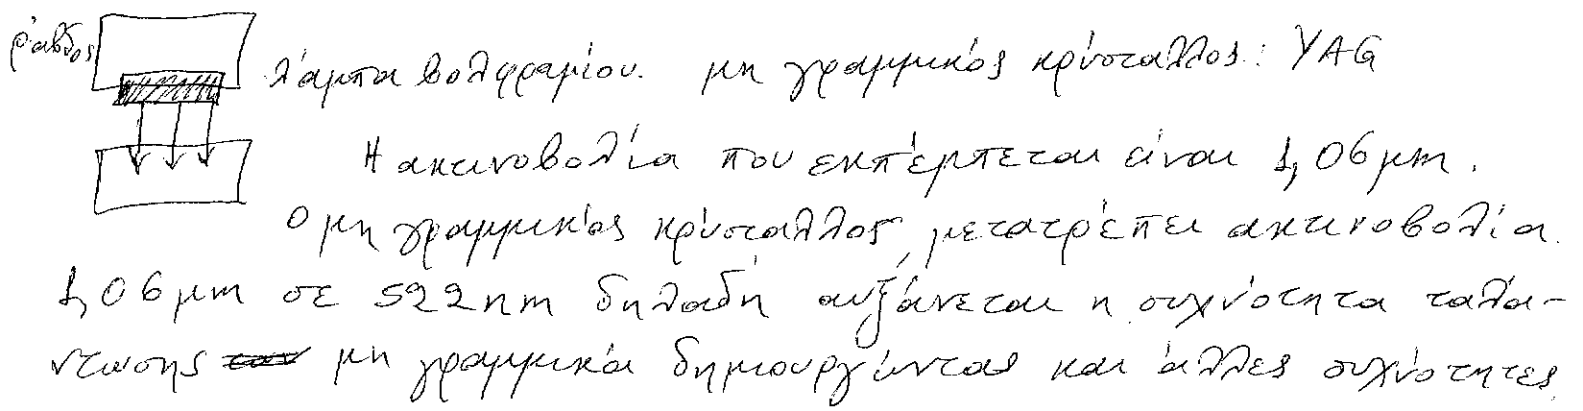 ράβδος
λάμπα βολφραμίου. μη γραμμικός κρύσταλλος: YAG
Η ακτινοβολία που εκπέμπεται είναι 1,06 μm.
Ο μη γραμμικός κρύσταλλος μετατρέπει ακτινοβολία
1,06 μm σε 522nm δηλαδή αυξάνεται η συχνότητα ταλά-
ντωσης μη γραμμικά δημιουργώντας και άλλες συχνότητες